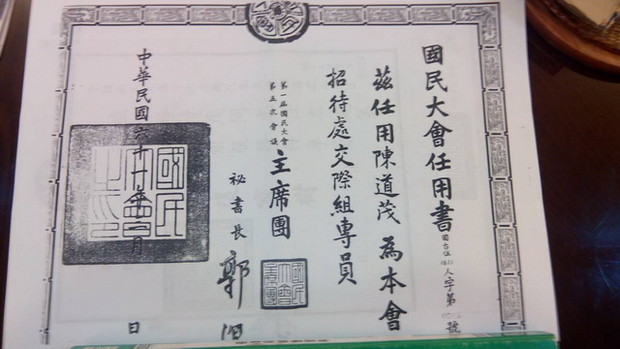 國民大會任用書
人字第 號
茲任用陳道茂為本會
招待處交際組專員
第一屆國民大會
第五次會議
主席團
祕書長 郭
中華民國六十年二月 日
國民大會之印